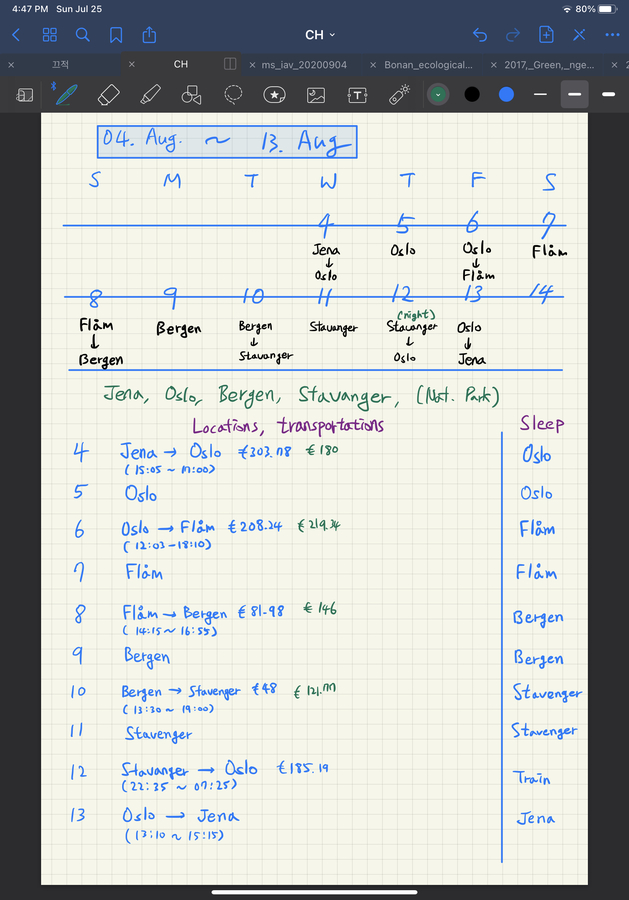 4:47 PM Sun Jul 25 80%
CH
끄적 CH ms_iav_20200904 Bonan_ecological... 2017,_Green,_nge...
04. Aug. ~ 13. Aug
S M T W T F S
4 5 6 7
Jena ↓ Oslo
Oslo
Oslo ↓ Flåm
Flåm
8 9 10 11 12 13 14
Flåm ↓ Bergen
Bergen
Bergen ↓ Stavanger
Stavanger
(night) Stavanger ↓ Oslo
Oslo ↓ Jena
Jena, Oslo, Bergen, Stavanger, (Nat. Park)
Locations, transportations Sleep
4 Jena → Oslo €303.78 €180 Oslo
(15:05 ~ 17:00)
5 Oslo Oslo
6 Oslo → Flåm €208.24 €219.34 Flåm
(12:03-18:10)
7 Flåm Flåm
8 Flåm → Bergen €81.98 €146 Bergen
(14:15 ~ 16:55)
9 Bergen Bergen
10 Bergen → Stavenger €48 €121.77 Stavenger
(13:30 ~ 19:00)
11 Stavenger Stavenger
12 Stavanger → Oslo €185.19 Train
(22:35 ~ 07:25)
13 Oslo → Jena Jena
(13:10 ~ 15:15)